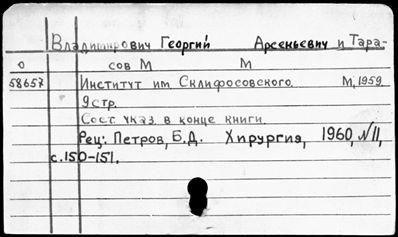 Владимирович Георгий Арсеньевич и Тара-
0 сов М М
58657 Институт им Склифосовского. М, 1959
9 стр.
Сост. указ. в конце книги.
Рец: Петров, Б.Д. Хирургия, 1960, №11,
с.150-151.